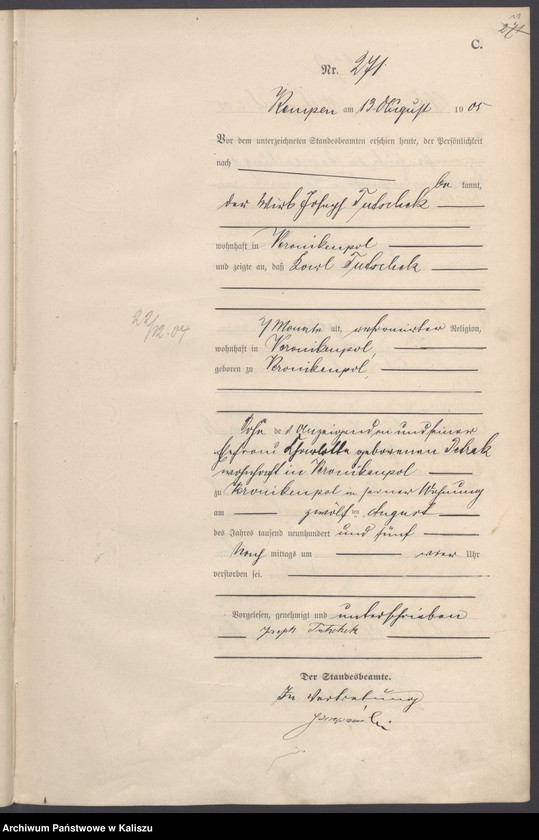 271
C.
Nr. 271
Kempen am 13. August 1905
Vor dem unterzeichneten Standesbeamten erschien heute, der Persönlichkeit
nach
be kannt,
der Wirt Joseph Tutschek
wohnhaft in Veronikenpol
und zeigte an, daß Karl Tutschek
22/12.04
7 Monate alt, reformirter Religion,
wohnhaft in Veronikenpol,
geboren zu Veronikenpol,
Sohn des Anzeigenden und seiner
Ehefrau Charlotte geborenen
wohnhaft in Veronikenpol
zu Veronikenpol in seiner Wohnung
am zwölften August
des Jahres tausend neunhundert und fünf
Nach mittags um vier Uhr
verstorben sei.
Vorgelesen, genehmigt und unterschrieben
Joseph Tutschek
Der Standesbeamte.
In Vertretung
Archiwum Państwowe w Kaliszu